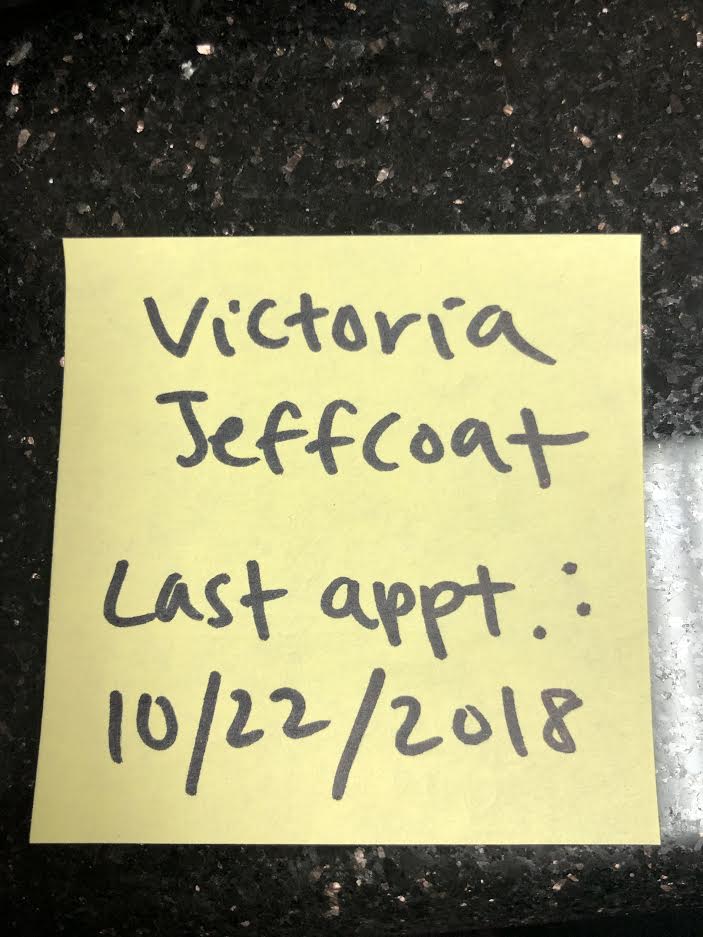 Victoria
Jeffcoat
Last appt.:
10/22/2018